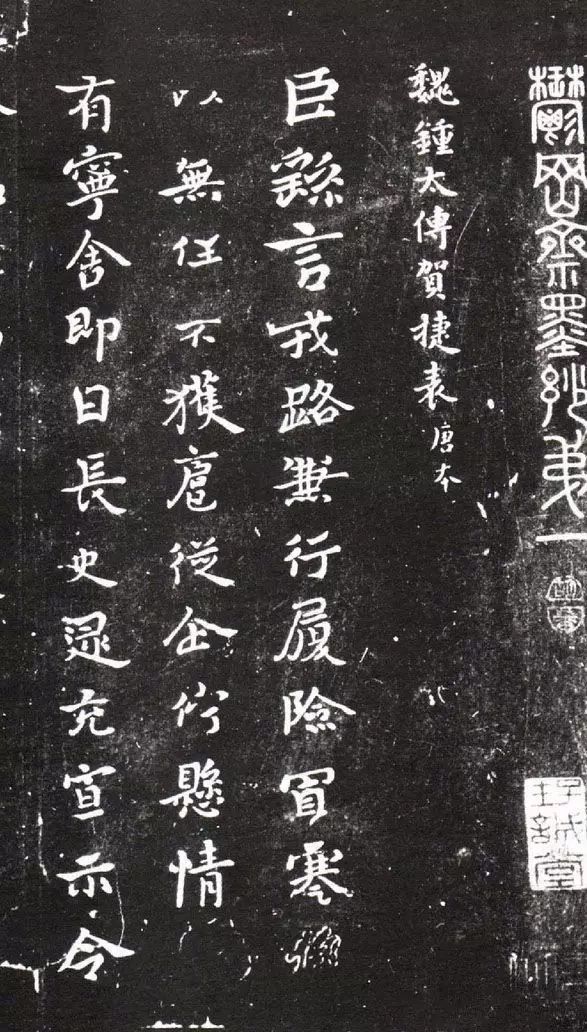 鬱岡齋墨妙第一
魏鍾太傅賀捷表 唐本
臣繇言戎路兼行履險冒寒
以無任不獲扈從企佇懸情
有寧舍即日長史逯充宣示令